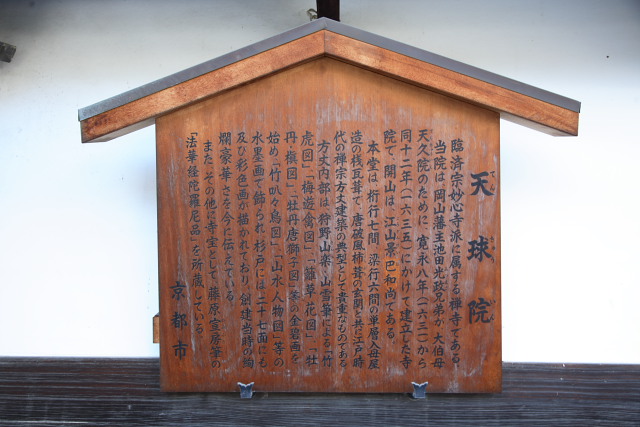 天球院
てんきゅういん
臨済宗妙心寺派に属する禅寺である。
当院は、岡山藩主池田光政兄弟が、大伯母
天久院のために、寛永八年（一六三一）から
同十二年（一六三五）にかけて建立した寺
院で、開山は、江山景巴和尚である。
本堂は、桁行七間、梁行六間の単層入母屋
造の桟瓦葺で、唐破風杮葺の玄関と共に江戸時
代の禅宗方丈建築の典型として貴重なものである。
方丈内部は、狩野山楽、山雪筆による「竹
虎図」、「梅遊禽図」、「籬草花図」、「牡
丹・椒図」、「牡丹唐獅子図」等の金碧画を
始め、「竹叭々鳥図」、「山水人物図」等の
水墨画で飾られ、杉戸には二十七面にも
及ぶ彩色画が描かれており、創建当時の絢
爛豪華さを今に伝えている。
また、その他に寺宝として、藤原宣房筆の
「法華経陀羅尼品」を所蔵している。
京都市